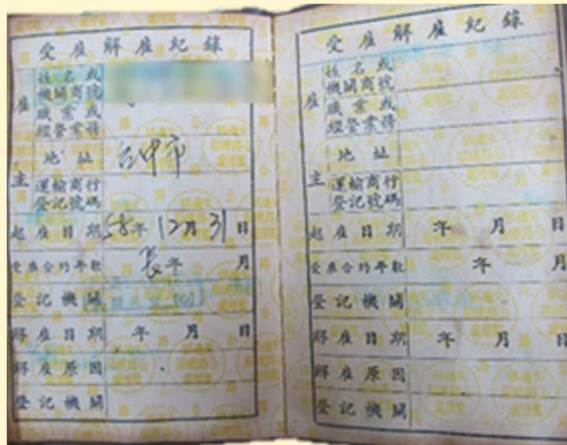 受雇解雇紀錄
雇主
姓名或機關商號
職業或經營業務
地址 台中市
運輸商行登記號碼
起雇日期 58年12月31日
受雇合約年數 長年 月
登記機關
解雇日期 年 月 日
解雇原因
登記機關
受雇解雇紀錄
雇主
姓名或機關商號
職業或經營業務
地址
運輸商行登記號碼
起雇日期 年 月 日
受雇合約年數 年 月
登記機關
解雇日期 年 月 日
解雇原因
登記機關